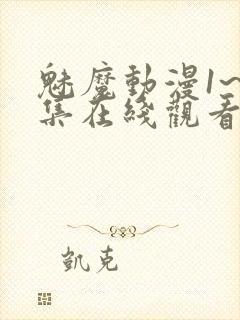 魅魔動漫1~
集在綫觀看
凱克